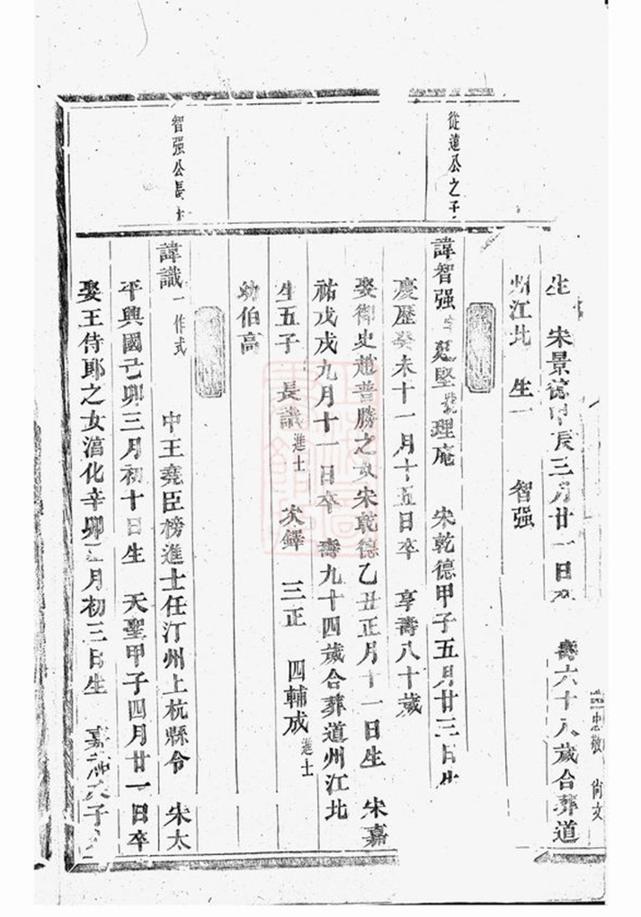 忠敬 尚文
從蓮公之子
生 宋景德甲辰三月廿一日卒 壽六十八歲合葬道
州江北 生一 智强
諱智强 字 堅號理庵 宋乾德甲子五月廿三日生
慶歷癸未十一月十五日卒 享壽八十歲
娶御史趙普勝之女宋乾德乙丑正月十一日生 宋嘉
祐戊戌九月十一日卒 壽九十四歲合葬道州江北
生五子 長識進士 次鐸 三正 四輔成進士
幼伯高
智强公長
諱識一作式 中王堯臣榜進士任汀州上杭縣令 宋太
平興國己卯三月初十日生 天聖甲子四月廿一日卒
娶王侍郎之女淳化辛卯 月初三日生 嘉